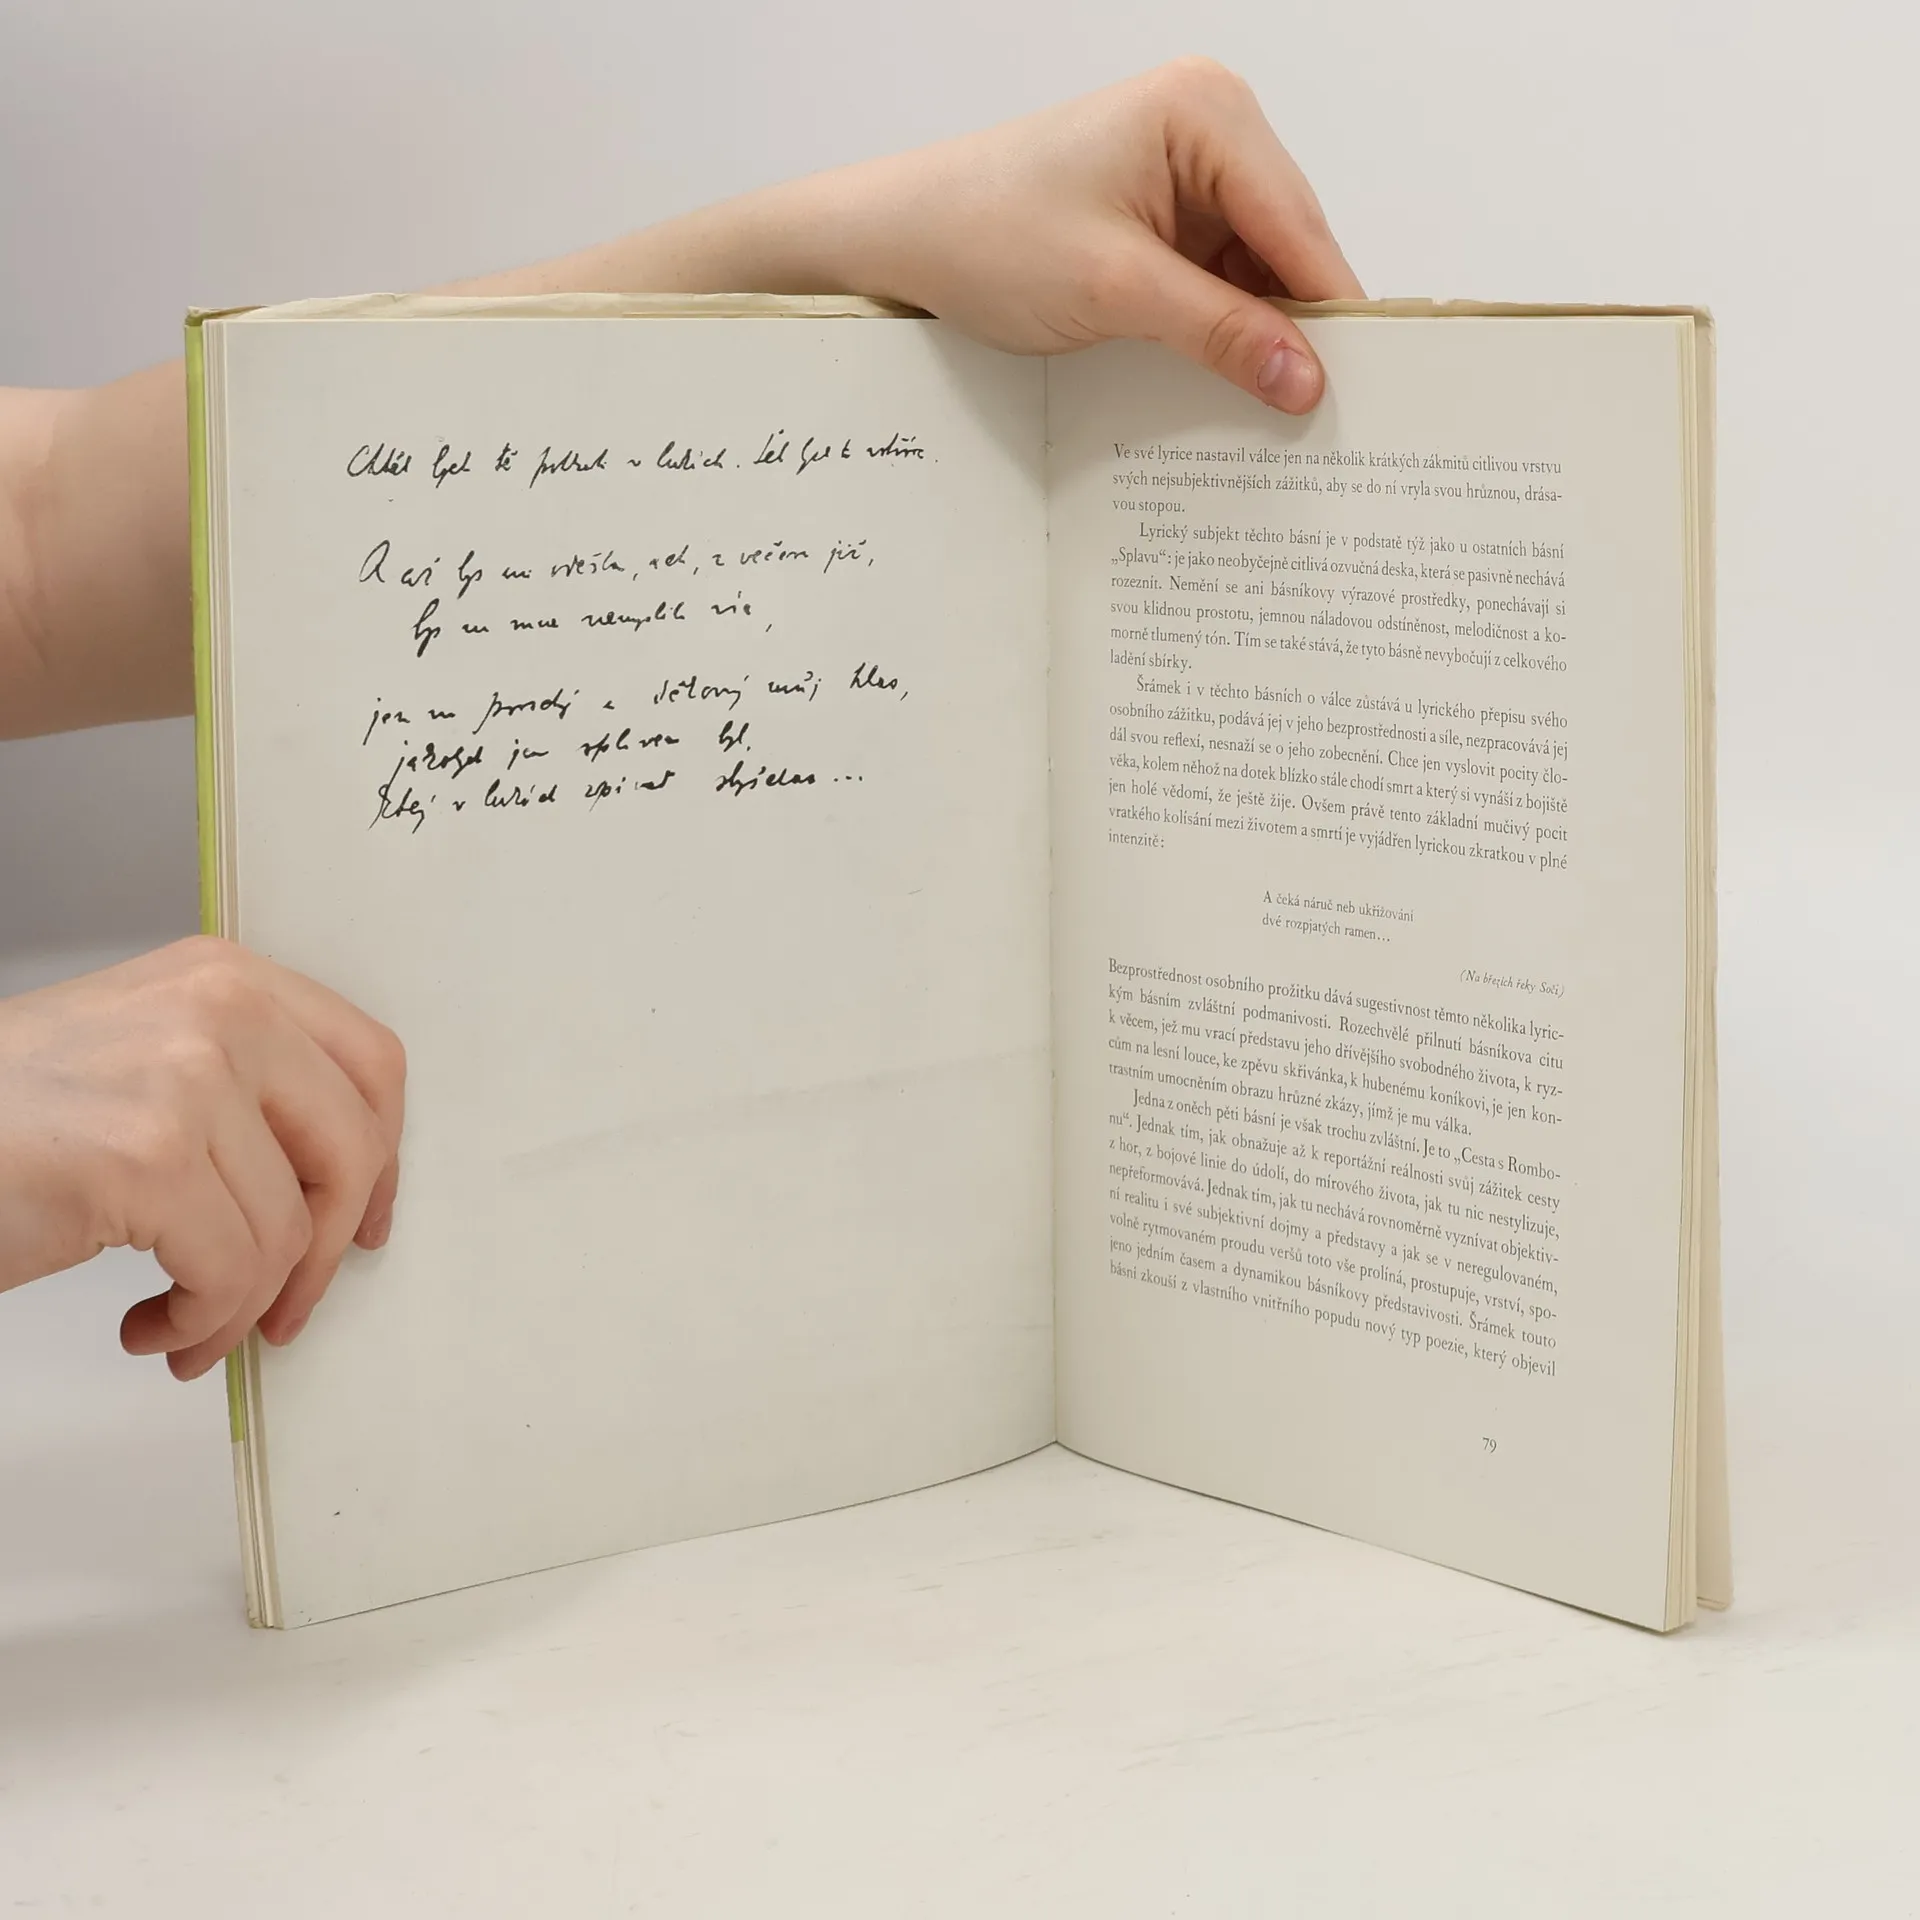 Chtěl bych tě potkati v lukách. Šel bych t vstříc.
A až bys mi vřeš, ach, z večera již,
bys na mne nemyslila více,
jen na prosdý a dětový můj hlas,
jakobych jen splavem byl,
jejž v lukách zpívat slyšelas...
Ve své lyrice nastavil válce jen na několik krátkých zákmitů citlivou vrstvu
svých nejsubjektivnějších zážitků, aby se do ní vryla svou hrůznou, drása-
vou stopou.
Lyrický subjekt těchto básní je v podstatě týž jako u ostatních básní
„Splavu“: je jako neobyčejně citlivá ozvučná deska, která se pasivně nechává
rozeznít. Nemění se ani básníkovy výrazové prostředky, ponechávají si
svou klidnou prostotu, jemnou náladovou odstíněnost, melodičnost a ko-
morně tlumený tón. Tím se také stává, že tyto básně nevybočují z celkového
ladění sbírky.
Šrámek i v těchto básních o válce zůstává u lyrického přepisu svého
osobního zážitku, podává jej v jeho bezprostřednosti a síle, nezpracovává jej
dál svou reflexí, nesnaží se o jeho zobecnění. Chce jen vyslovit pocity člo-
věka, kolem něhož na dotek blízko stále chodí smrt a který si vynáší z bojiště
jen holé vědomí, že ještě žije. Ovšem právě tento základní mučivý pocit
vratkého kolísání mezi životem a smrtí je vyjádřen lyrickou zkratkou v plné
intenzitě:
A čeká náruč neb ukřižování
dvé rozpjatých ramen...
(Na březích řeky Soči)
Bezprostřednost osobního prožitku dává sugestivnost těmto několika lyric-
kým básním zvláštní podmanivosti. Rozechvělé přilnutí básníkova citu
k věcem, jež mu vrací představu jeho dřívějšího svobodného života, k ryz-
cům na lesní louce, ke zpěvu skřivánka, k hubenému koníkovi, je jen kon-
trastním umocněním obrazu hrůzné zkázy, jímž je mu válka.
Jedna z oněch pěti básní je však trochu zvláštní. Je to „Cesta s Rombo-
nu“. Jednak tím, jak obnažuje až k reportážní reálnosti svůj zážitek cesty
z hor, z bojové linie do údolí, do mírového života, jak tu nic nestylizuje,
nepřeformovává. Jednak tím, jak tu nechává rovnoměrně vyznívat objektiv-
ní realitu i své subjektivní dojmy a představy a jak se v neregulovaném,
volně rytmovaném proudu veršů toto vše prolíná, prostupuje, vrství, spo-
jeno jedním časem a dynamikou básníkovy představivosti. Šrámek touto
básní zkouší z vlastního vnitřního popudu nový typ poezie, který objevil
79